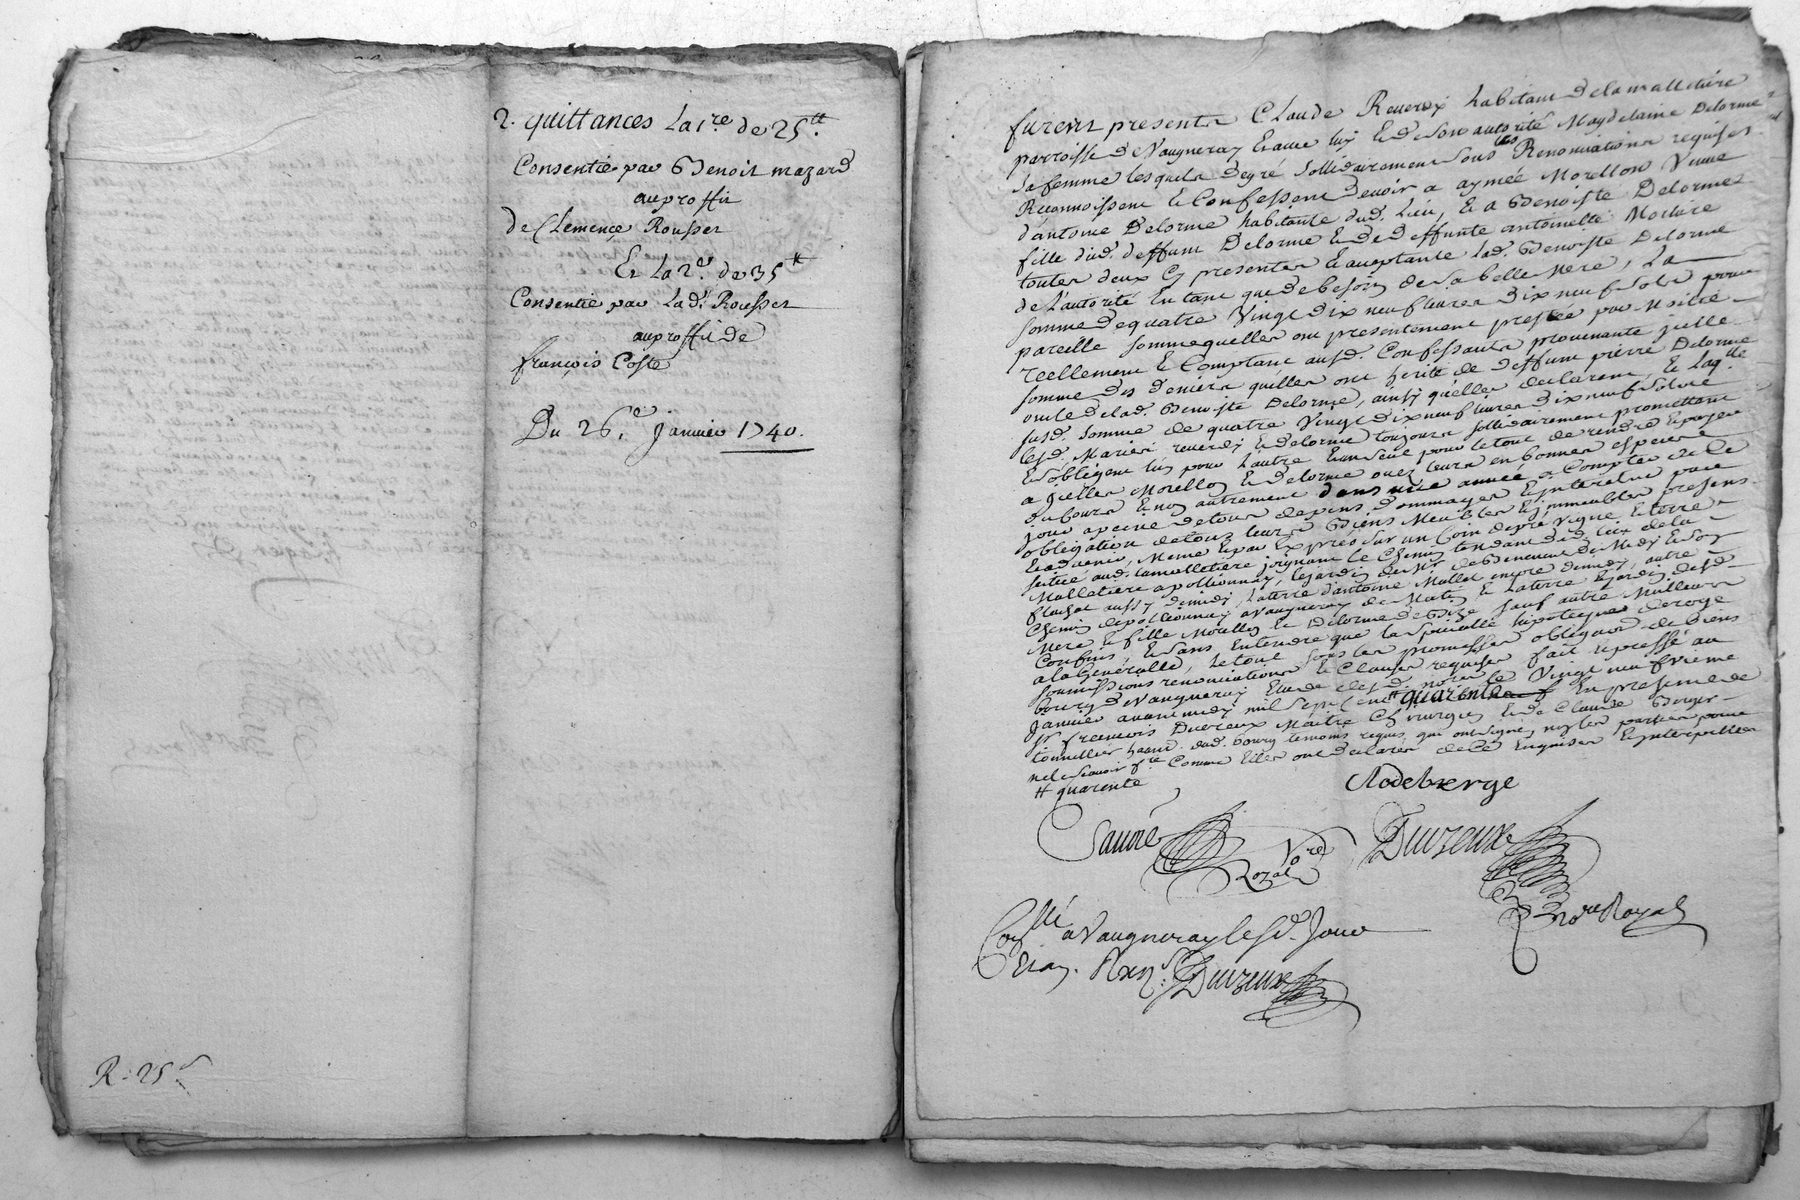 2. quittances La 1.re de 25 tt.
Consentie par Benoit mazard
au proffit
de Clemence Rousset
Et La 2e. de 35 tt
Consentie par Lad. Rousset
au proffit de
françois Coste
Du 26e. Janvier 1740.
R. 25 s
furent presents Claude Reverdy habitant de la malletiére
parroisse de Vaugneray Et avec luy Et de Son autorité Magdelaine Delorme
sa femme lesquels de gré Sollidairement Sous les Renonciations requises
Reconnoissent Et Confessent devoir a aymée Morellon Veuve
d'antoine Delorme habitante dud. Lieu, Et a Benoiste Delorme
fille dud. deffunt Delorme Et de deffunte antoinette Moclaire
toutes deux Cy presentes Et acceptante lad. Benoiste Delorme
de L'autorité En tant que de besoin de sa belle Mere, La
somme de quatre Vingt dix neuf livres dix neuf sols pour
pareille somme quelles ont presentement prestée par Moitié
reellement Et Comptant ausd. Confessants provenante jcelle
somme des deniers quelles ont herité de deffunt pierre Delorme
oncle de lad. Benoiste Delorme, ainsy qu'elles declarent, Et laq.lle
susd. somme de quatre Vingt dix neuf livres dix neuf sols
lesd. Mariés reverdy Et delorme toujours sollidairement promettent
Et s'obligent lun pour L'autre Et un seul pour le tout de rendre Et payer
a jcelles Morellon Et delorme avec leurs en bonnes especes
du Cours Et non autrement dans une année a Compter de Ce
jour a peine de tous depens dommages Et interets par
obligation de tous leurs Biens Meubles Et jmmeubles presens
Et advenir, Meme Et par Expres sur un Coin de pré Vigne Et terre
scitué aud. La malletiére joignant le Chemin tendant dud. lieu de la
Malletiere a pollionnay, le jardin du Sr. de
flachat aussy de midy, La terre d'antoine Mallet encore de midy, autre
Chemin de pollionnay a Vaugneray de Matin Et La terre Et jardin desd.
Mere Et fille Morellon Et Delorme de Bize sauf autre Meilleurs
Confins, Et sans Entendre que la Specialle hipoteque deroge
a la Generalle, Le tout sous les promesses obligaon de biens
soumissions renonciations Et Clauses requises fait Et passé au
bourg de Vaugneray Etude desd. nores le Vingt neufvieme
Janvier avant midy mil Sept Cent tt quarente En presence de
Sr francois Duvreux Maitre Chirurgien Et de Claude Berger
tonnellier habit. dud. bourg temoins requis qui ont signés non les parties pour
ne le scavoir f.re Comme Elles ont declarés de Ce Enquises Et interpellées
tt quarente
Clodeberge
Sauné
Nre
Royal
Duvreux
Nore Royal
Con.llé a Vaugneray le sd. Jour